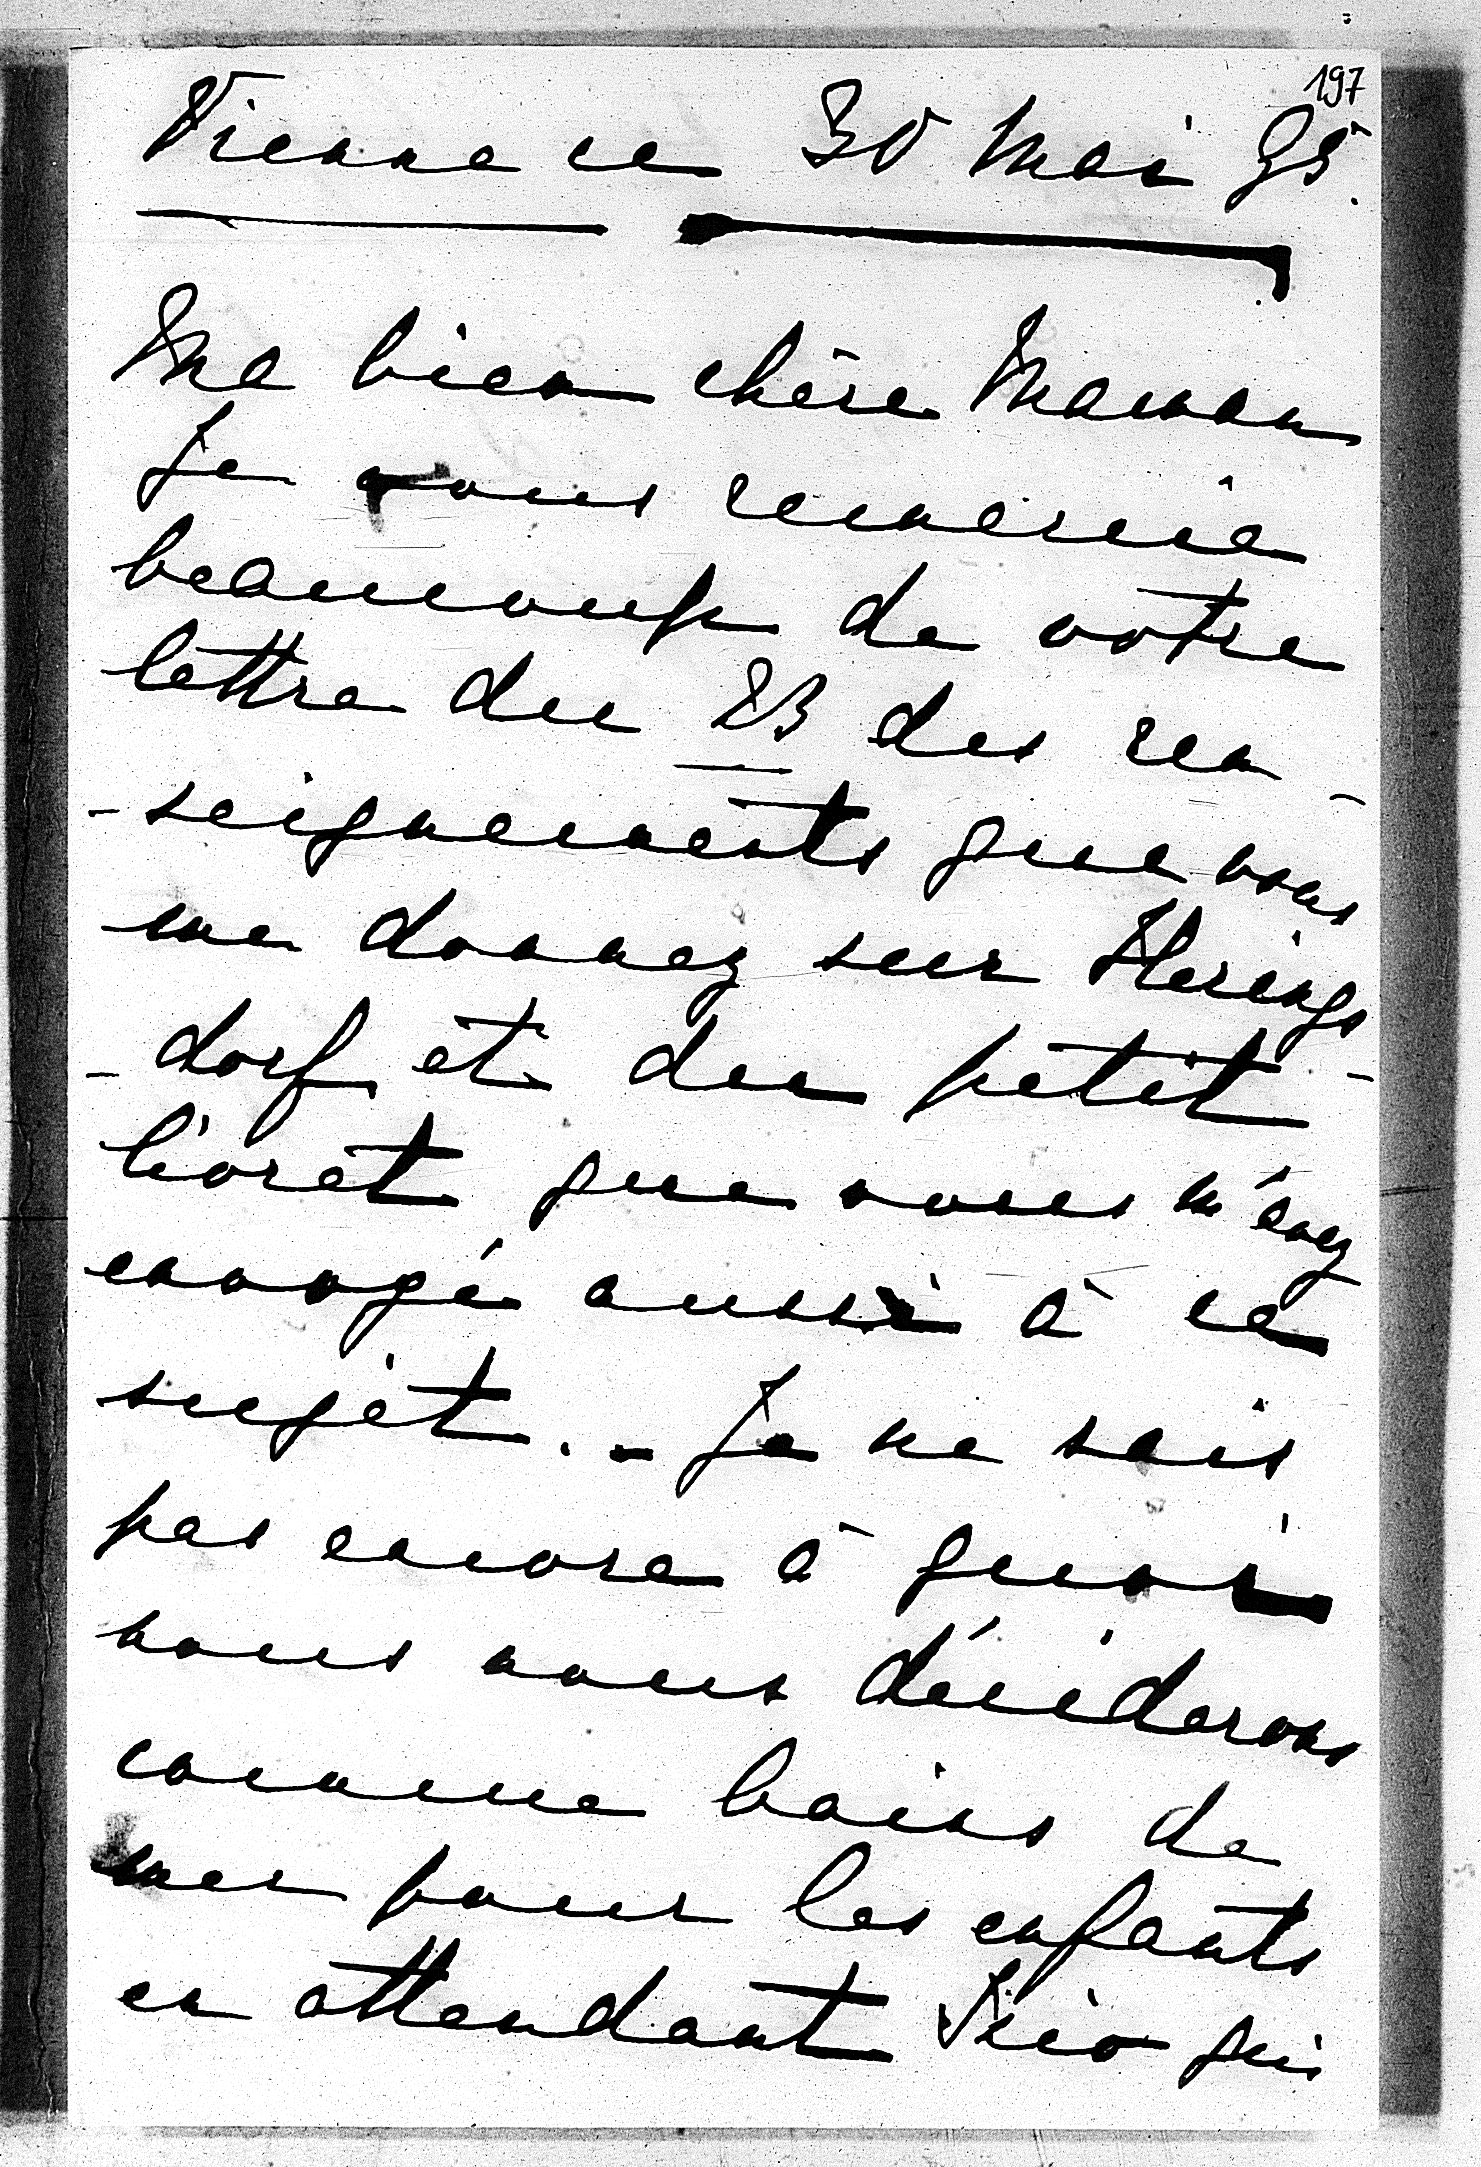 197
Vienne ce 30 Mai 95.
Ma bien chère Maman
Je vous remercie
beaucoup de votre
lettre du 23 des ren-
-seignements que vous
me donnez sur Herings-
-dorf et du petit
livret que vous m'avez
envoyé aussi à ce
sujet. - Je ne sais
pas encore à quoi
nous nous déciderons
comme bains de
mer pour les enfants
en attendant qui